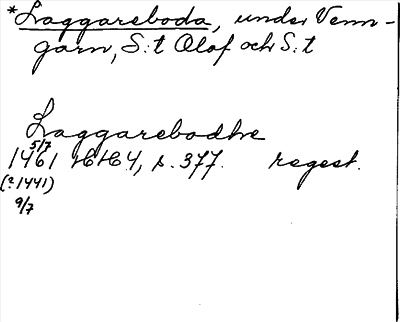 *Laggareboda, under Venn-
garn, S:t Olof och S:t
Laggarebodhe
5/7
1461 HH 4, s. 377. regest.
(?1441)
9/7